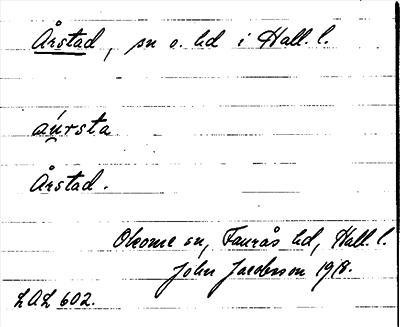 Årstad, sn o. hd i Hall. l.
aúrsta
Årstad.
Okome sn, Faurås hd, Hall. l.
John Jacobsson 1918.
LAL 602.